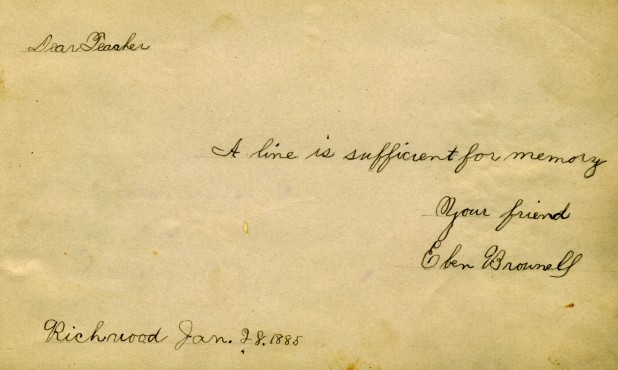 Dear Teacher
A line is sufficient for memory
Your friend
Eben Brownell
Richwood Jan. 28. 1885